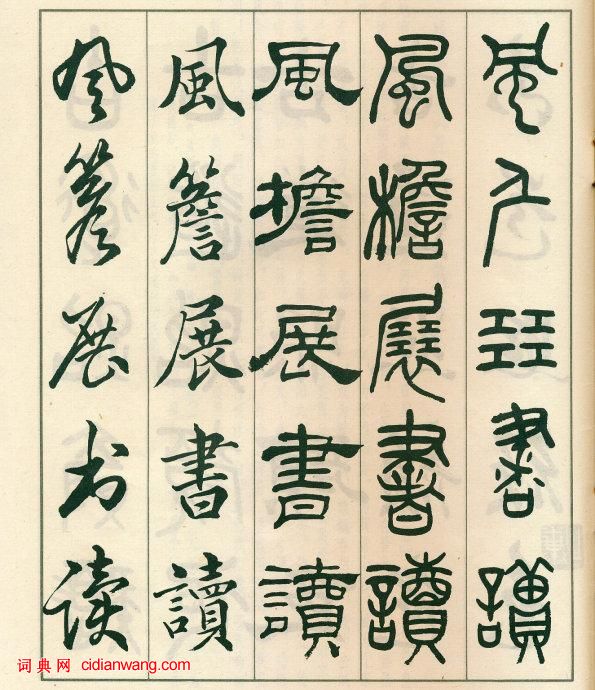 風厃㠭書讀
風檐展書讀
風檐展書讀
風簷展書讀
风簷展书读
词典网 cidianwang.com